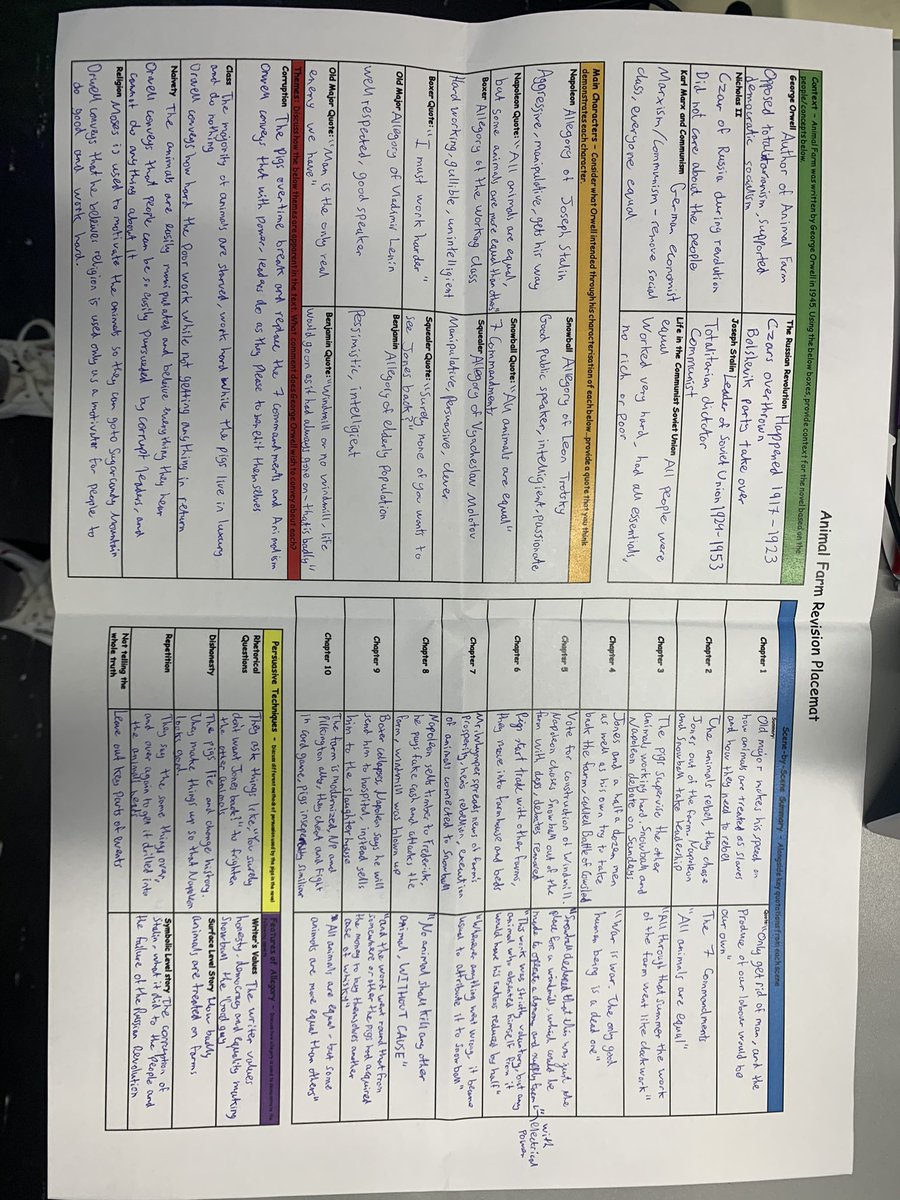 Animal Farm Revision Placemat
Context – Animal Farm was written by George Orwell in 1945. Using the below boxes, provide context for the novel based on the
people/concepts below.
George Orwell Author of Animal Farm
Opposed totalitarianism, supported
democratic socialism
The Russian Revolution Happened 1917 - 1923
Czars overthrown
Bolshevik party take over
Nicholas II
Czar of Russia during revolution
Did not care about the people
Joseph Stalin Leader of Soviet Union 1924-1953
Totalitarian dictator
Communist
Karl Marx and Communism German economist
Marxism/Communism - remove social
class, everyone equal
Life in the Communist Soviet Union All people were
equal
Worked very hard, had all essentials,
no rich or poor
Main Characters – Consider what Orwell intended through his characterisation of each below...provide a quote that you think
demonstrates each character.
Napoleon Allegory of Joseph Stalin
Aggressive, manipulative, gets his way
Snowball Allegory of Leon Trotsky
Good public speaker, intelligient, passionate
Napoleon Quote: "All animals are equal,
but some animals are more equal than others"
Snowball Quote: "All animals are equal"
7 Commandments
Boxer Allegory of the working class
Hard working, gullible, unintelligient
Squealer Allegory of Vyncheslav Molotov
Manipulative, persuasive, clever
Boxer Quote: "I must work harder"
Squealer Quote: "Surely none of you wants to
see Jones back?"
Old Major Allegory of Vladimir Lenin
well respected, good speaker
Benjamin Allegory of elderly population
Pessimistic, intelligient
Old Major Quote: "Man is the only real
enemy we have"
Benjamin Quote: "Windmill or no windmill, life
would go on as it had always gone on - that is badly"
Themes: Discuss how the below themes are apparent in the text. What comment does George Orwell wish to convey about each?
Corruption The Pigs overtime break and replace the 7 commandments and Animalism
Orwell conveys that with power, leaders do as they please to benefit themselves
Class The majority of animals are starved, work hard while the pigs live in luxury
and do nothing
Orwell conveys how hard the Poor work while not getting anything in return
Naivety The animals are easily manipulated and believe everything they hear
Orwell conveys that people can be so easily pursueded by corrupt leaders, and
cannot do anything about it
Religion Moses is used to motivate the animals so they can go to Sugarcandy Mountain
Orwell conveys that he believes religion is used only as a motivator for people to
do good and work hard.
Scene-by-Scene Summary – Alongside key quotations from each scene
Summary
Quote
Chapter 1
Old major makes his speech on
how animals are treated as slaves
and how they need to rebel
"Only get rid of man, and the
Produce of our labour would be
our own"
Chapter 2
The animals rebel, they chase
Jones out of the farm. Napoleon
and Snowball take leadership
The 7 Commandments
"All animals are equal"
Chapter 3
The pigs supervise the other
animals working hard. Snowball and
Napoleon debate on Sundays
"All through that summer the work
of the farm went like clockwork"
Chapter 4
Jones and a half a dozen men
as well as his own try to take
back the farm, called Battle of Cowshed
"War is war. The only good
human being is a dead one"
Chapter 5
Vote for construction of Windmill.
Napoleon chases Snowball out of the
farm with dogs, debates removed
"Snowball declared that this was just the
place for a windmill, which could be
made to operate a dynamo and supply the farm
with electrical power"
Chapter 6
Pigs start trade with other farms,
they move into farmhouse and beds
"This work was strictly voluntary, but any
animal who absented himself from it
would have his rations reduced by half"
Chapter 7
Mr Whymper spreads news of farm's
prosperity, hens rebellion, execution
of animals connected to Snowball
"Whenever anything went wrong it became
usual to attribute it to Snowball"
Chapter 8
Napoleon sells timber to Frederick,
he pays fake cash and attacks the
farm, windmill was blown up
"No animal shall kill any other
animal WITHOUT CAUSE"
Chapter 9
Boxer collapses, Napoleon says he will
send him to hospital, instead sells
him to the slaughterhouse
"and the word went round that from
somewhere or other the pigs had acquired
the money to buy themselves another
case of whisky"
Chapter 10
The farm is modernized, AF and
Pilkington ally, they cheat and fight
in card game, pigs similiar
"All animals are equal - but some
animals are more equal than others"
Persuasive Techniques – Discuss different methods of persuasion used by the pigs in the novel
Rhetorical
Questions
They ask things like, "You surely
don't want Jones back?" to frighten
the other animals
Dishonesty
The pigs lie and change history.
They make things up so that Napoleon
looks good.
Repetition
They say the same thing over,
and over again to get it drilled into
the animals heads
Not telling the
whole truth
Leave out key parts of events
Features of Allegory
Writer's Values The writer values
honesty, democracy and equality making
Snowball the "Good guy"
Surface Level Story How badly
animals are treated on farms
Symbolic Level story The corruption of
Stalin, what it did to the people and
the failure of the Russian Revolution